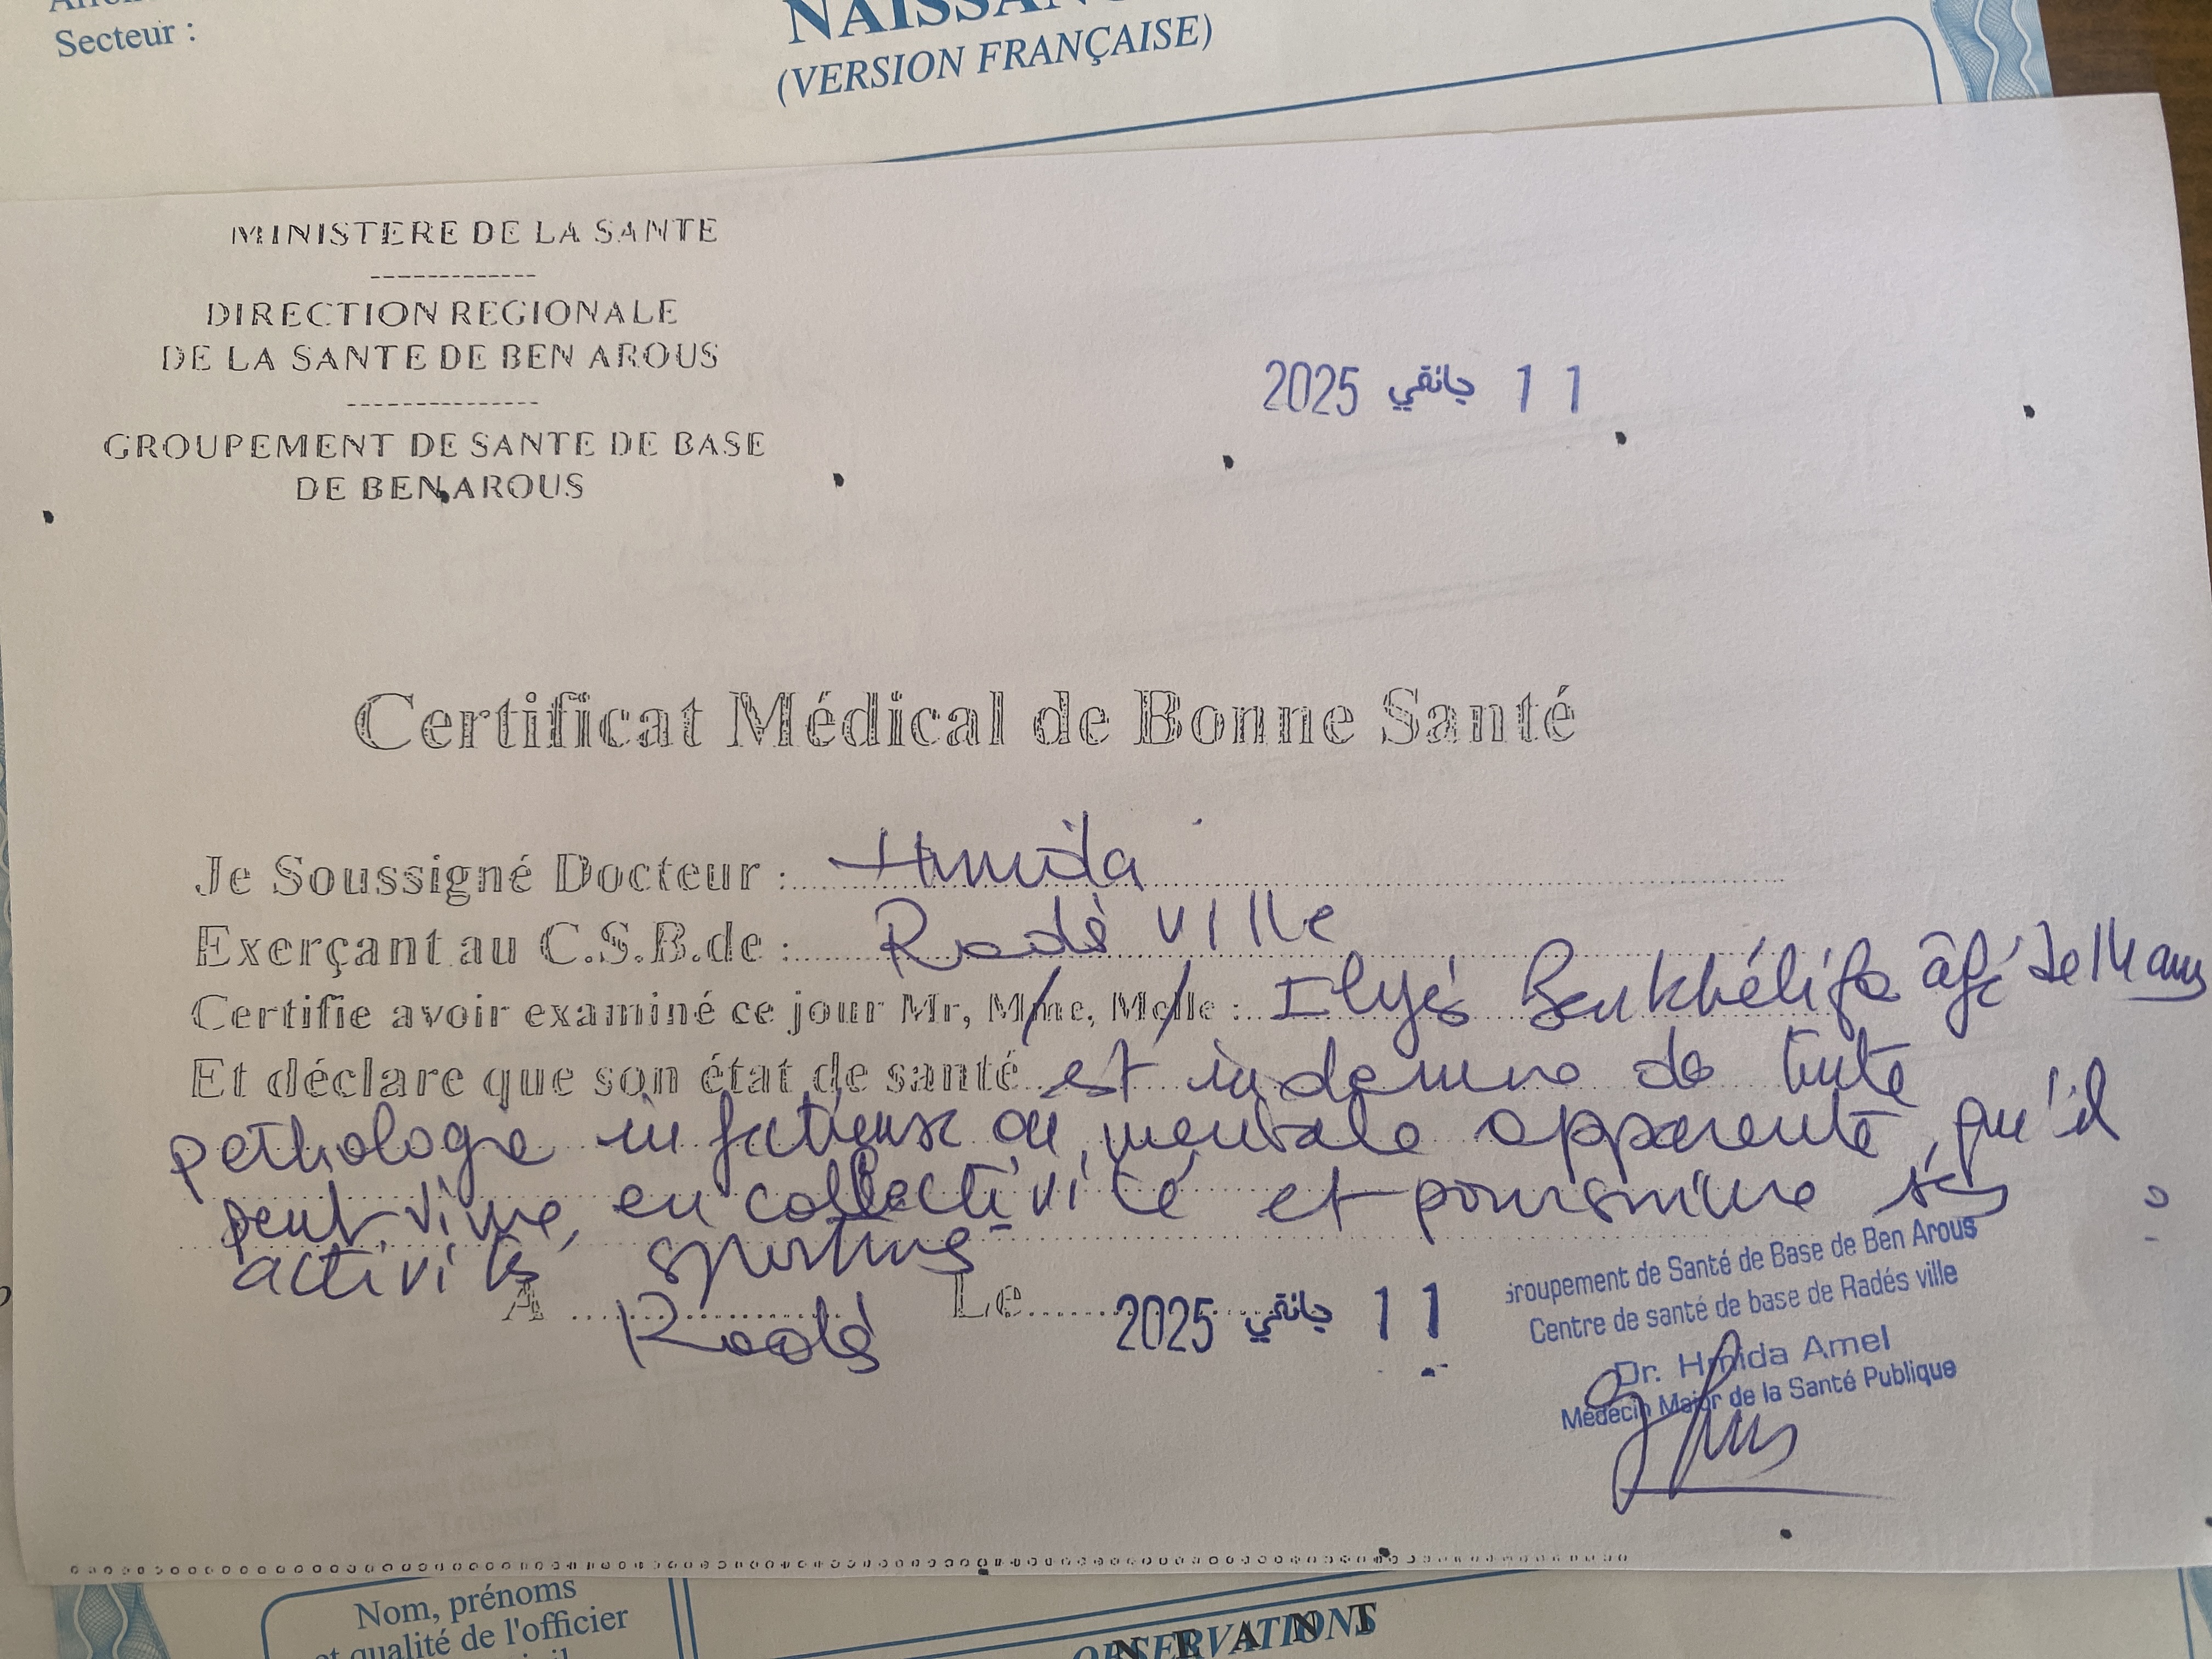 Secteur :
NAISSANC
(VERSION FRANÇAISE)
MINISTERE DE LA SANTE
-------------
DIRECTION REGIONALE
DE LA SANTE DE BEN AROUS
---------------
GROUPEMENT DE SANTE DE BASE
DE BEN AROUS
11 جانفي 2025
Certificat Médical de Bonne Santé
Je Soussigné Docteur : Hmida
Exerçant au C.S.B.de : Radès ville
Certifie avoir examiné ce jour Mr, Mme, Melle : Ilyès Benkhélifa âgé de 14 ans
Et déclare que son état de santé est indemne de toute
pathologie infectieuse ou mentale apparente, qu'il
peut vivre en collectivité et poursuivre ses
activités sportives
A Radès Le 11 جانفي 2025
Groupement de Santé de Base de Ben Arous
Centre de santé de base de Radés ville
Dr. Hmida Amel
Médecin Major de la Santé Publique
Nom, prénoms
et qualité de l'officier
OBSERVATIONS
N E A N T